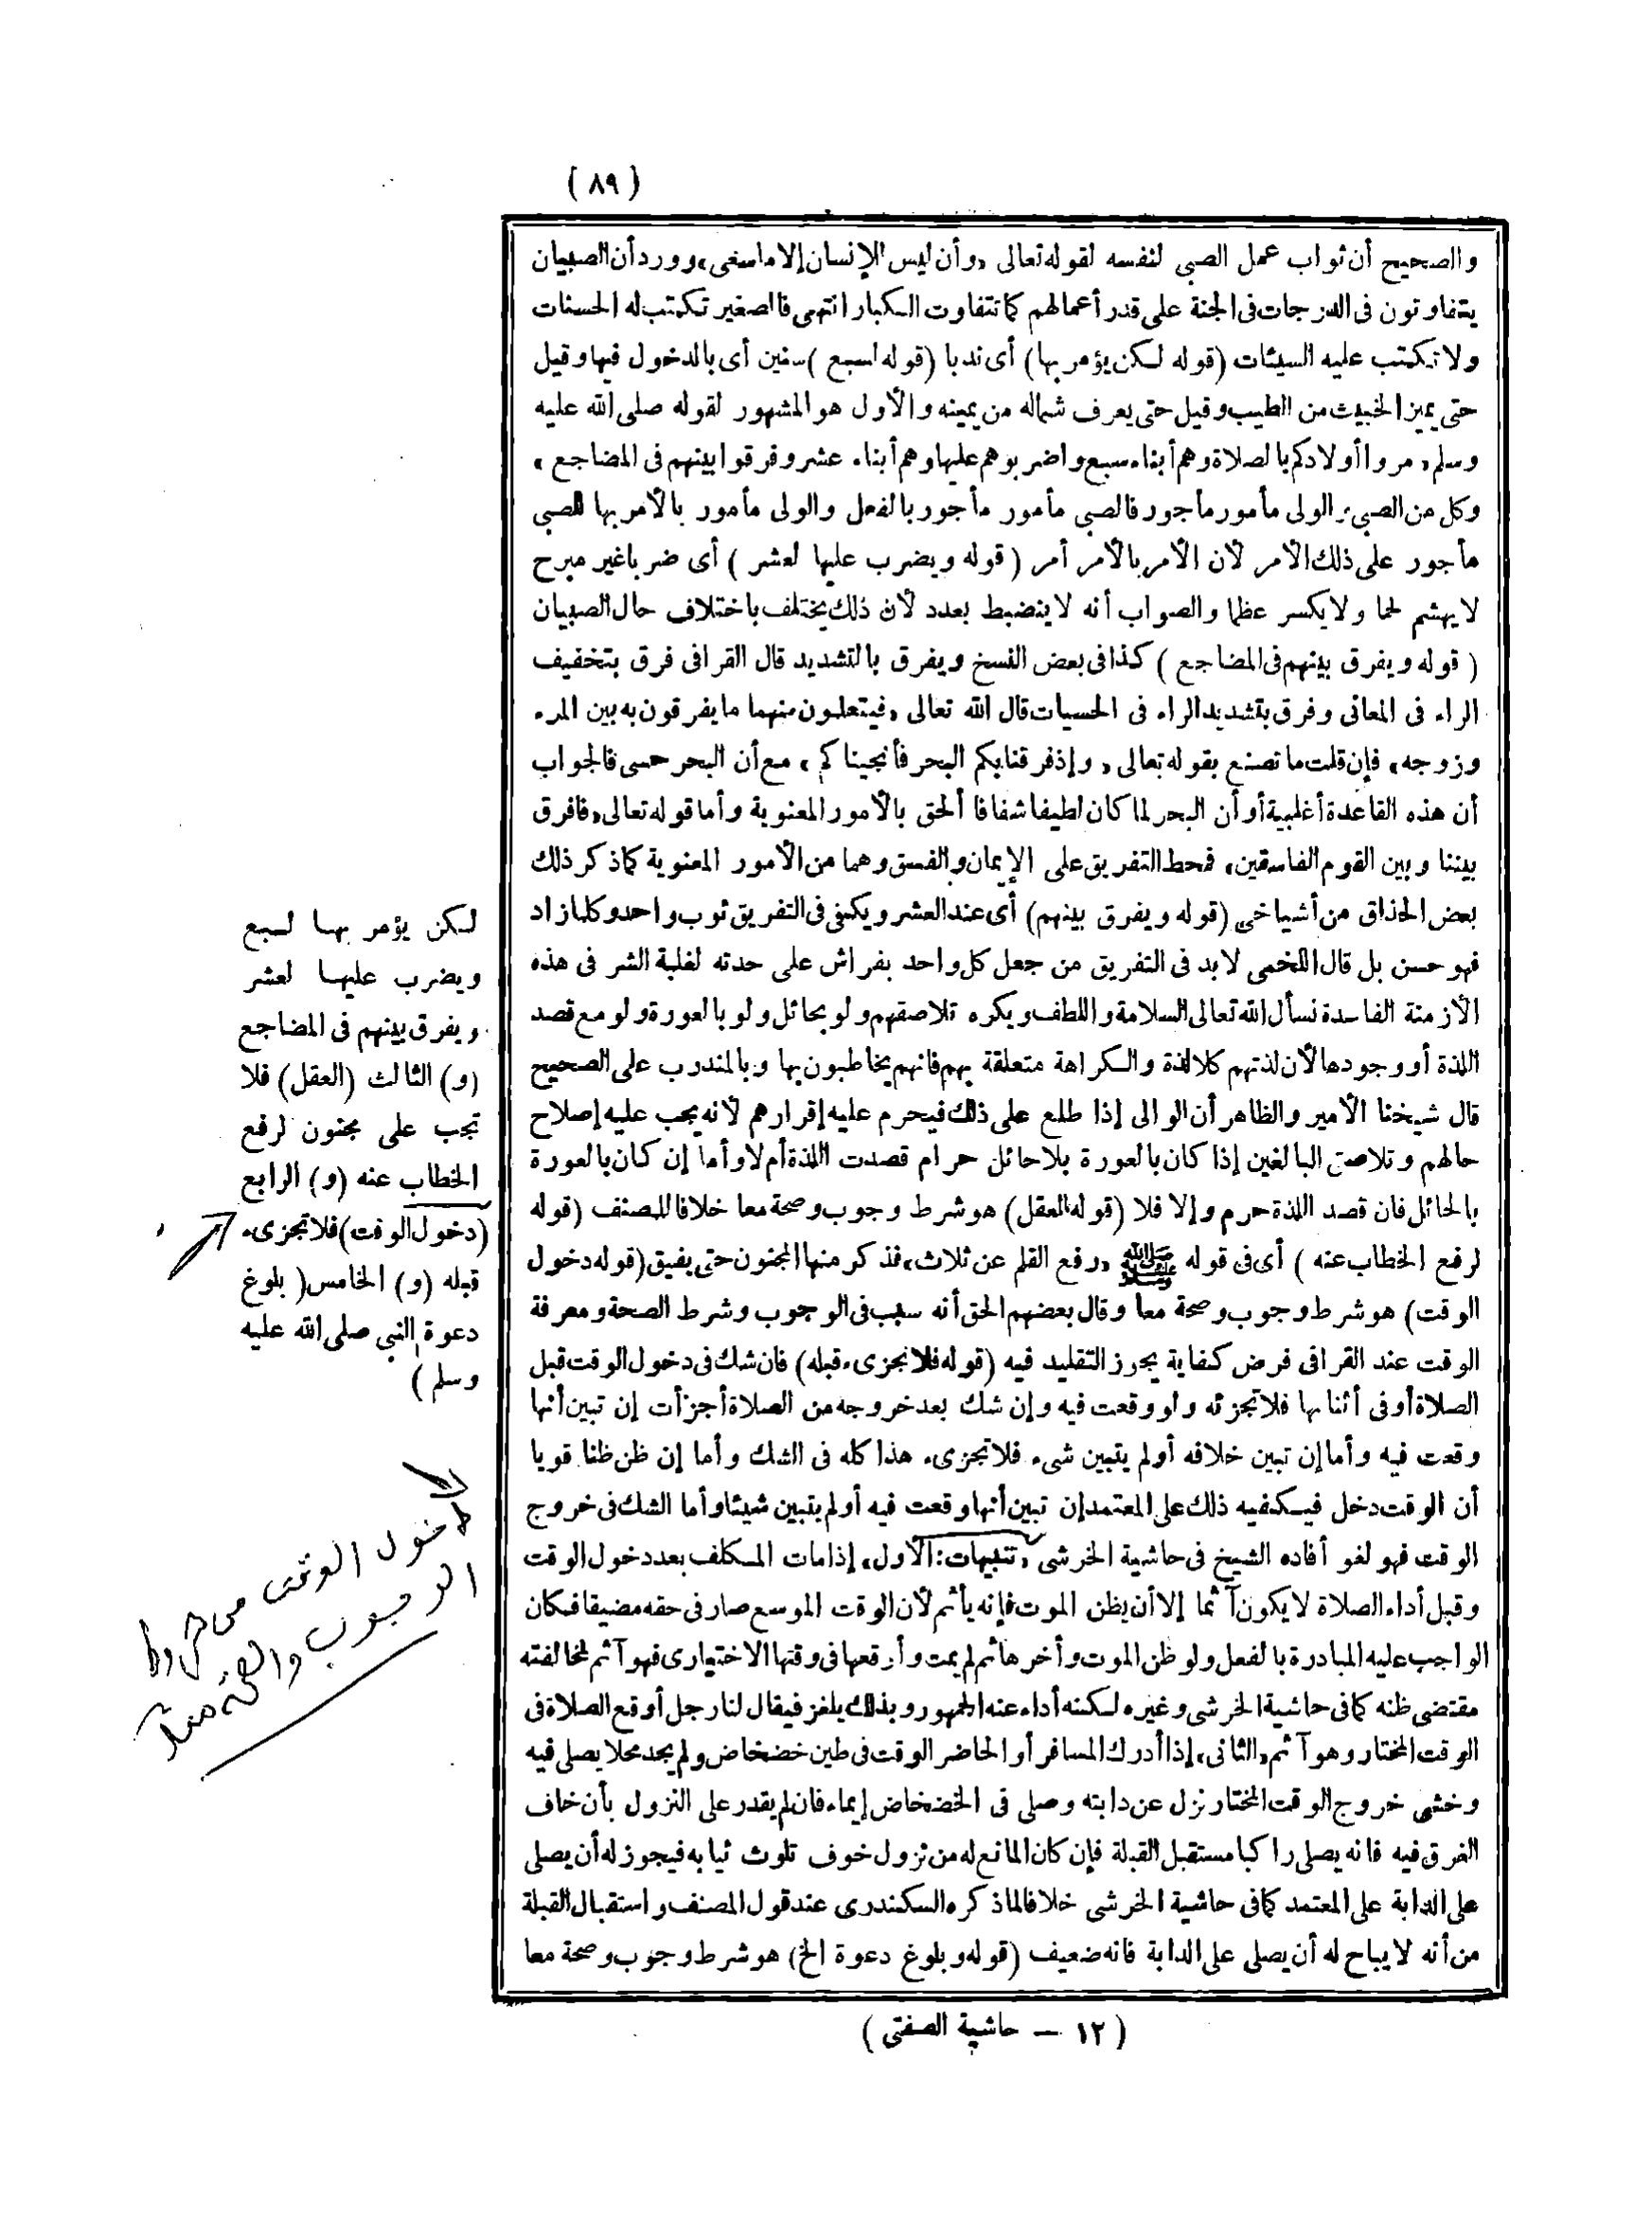 ( ٨٩ )
والصحيح أن ثواب عمل الصبي لنفسه لقوله تعالى «وأن ليس للإنسان إلا ما سعى» وورد أن الصبيان
يتفاوتون فى الدرجات فى الجنة على قدر أعمالهم كما تتفاوت الكبار انتهى فالصغير تكتب له الحسنات
ولا تكتب عليه السيئات (قوله لكن يؤمر بها) أى ندبا (قوله لسبع) سنين أى بالدخول فيها وقيل
حتى يميز الخبيث من الطيب وقيل حتى يعرف شماله من يمينه والأول هو المشهور لقوله صلى الله عليه
وسلم «مروا أولادكم بالصلاة وهم أبناء سبع واضربوهم عليها وهم أبناء عشر وفرقوا بينهم فى المضاجع»
وكل من الصبي والولى مأمور مأجور فالصبي مأمور مأجور بالفعل والولى مأمور بالأمر بها للصبي
مأجور على ذلك الأمر لأن الأمر بالأمر أمر (قوله ويضرب عليها لعشر) أى ضربا غير مبرح
لا يهشم لحما ولا يكسر عظما والصواب أنه لا ينضبط بعدد لأن ذلك يختلف باختلاف حال الصبيان
(قوله ويفرق بينهم فى المضاجع) كذا فى بعض النسخ ويفرق بالتشديد قال القرافى فرق بتخفيف
الراء فى المعانى وفرق بتشديد الراء فى الحسيات قال الله تعالى «فيتعلمون منهما ما يفرقون به بين المرء
وزوجه» فإن قلت ما تصنع بقوله تعالى «وإذ فرقنا بكم البحر فأنجيناكم» مع أن البحر حسى فالجواب
أن هذه القاعدة أغلبية أو أن البحر لما كان لطيفا شفافا ألحق بالأمور المعنوية وأما قوله تعالى «فافرق
بيننا وبين القوم الفاسقين» فمحط التفريق على الإيمان والفسق وهما من الأمور المعنوية كما ذكر ذلك
بعض الحذاق من أشياخى (قوله ويفرق بينهم) أى عند العشر ويكفى فى التفريق ثوب واحد وكلما زاد
فهو حسن بل قال اللخمى لابد فى التفريق من جعل كل واحد بفراش على حدته لغلبة الشر فى هذه
الأزمنة الفاسدة نسأل الله تعالى السلامة واللطف ويكره تلاصقهم ولو بحائل ولو بالعورة ولو مع قصد
اللذة أو وجودها لأن لذتهم كلا لذة والكراهة متعلقة بهم فانهم يخاطبون بها وبالمندوب على الصحيح
قال شيخنا الأمير والظاهر أن الوالى إذا طلع على ذلك فيحرم عليه إقرارهم لأنه يجب عليه إصلاح
حالهم وتلاصق البالغين إذا كان بالعورة بلا حائل حرام قصدت اللذة أم لا وأما إن كان بالعورة
بالحائل فان قصد اللذة حرم وإلا فلا (قوله العقل) هو شرط وجوب وصحة معا خلافا للمصنف (قوله
لرفع الخطاب عنه) أى فى قوله ﷺ «رفع القلم عن ثلاث» فذكر منها المجنون حتى يفيق (قوله دخول
الوقت) هو شرط وجوب وصحة معا وقال بعضهم الحق أنه سبب فى الوجوب وشرط الصحة ومعرفة
الوقت عند القرافى فرض كفاية يجوز التقليد فيه (قوله فلا تجزىء قبله) فان شك فى دخول الوقت قبل
الصلاة أو فى أثنائها فلا تجزئه ولو وقعت فيه وإن شك بعد خروجه من الصلاة أجزأت إن تبين أنها
وقعت فيه وأما إن تبين خلافه أو لم يتبين شىء فلا تجزىء هذا كله فى الشك وأما إن ظن ظنا قويا
أن الوقت دخل فيكفيه ذلك على المعتمد إن تبين أنها وقعت فيه أو لم يتبين شيئا وأما الشك فى خروج
الوقت فهو لغو أفاده الشيخ فى حاشية الخرشى «تنبيهات: الأول» إذا مات المكلف بعد دخول الوقت
وقبل أداء الصلاة لا يكون آثما إلا أن يظن الموت فإنه يأثم لأن الوقت الموسع صار فى حقه مضيقا فكان
الواجب عليه المبادرة بالفعل ولو ظن الموت وأخرها ثم لم يمت وأوقعها فى وقتها الاختيارى فهو آثم لمخالفته
مقتضى ظنه كما فى حاشية الخرشى وغيره لكنه أداء عند الجمهور وبذلك يلغز فيقال لنا رجل أوقع الصلاة فى
الوقت المختار وهو آثم «الثانى» إذا أدرك المسافر أو الحاضر الوقت فى طين خضخاض ولم يجد محلا يصلى فيه
وخشى خروج الوقت المختار نزل عن دابته وصلى فى الخضخاض إيماء فان لم يقدر على النزول بأن خاف
الغرق فيه فانه يصلى راكبا مستقبل القبلة فإن كان المانع له من نزول خوف تلوث ثيابه فيجوز له أن يصلى
على الدابة على المعتمد كما فى حاشية الخرشى خلافا لما ذكره السكندرى عند قول المصنف واستقبال القبلة
من أنه لا يباح له أن يصلى على الدابة فانه ضعيف (قوله وبلوغ دعوة الخ) هو شرط وجوب وصحة معا
لكن يؤمر بها لسبع
ويضرب عليها لعشر
ويفرق بينهم فى المضاجع
(و) الثالث (العقل) فلا
تجب على مجنون لرفع
الخطاب عنه (و) الرابع
(دخول الوقت) فلا تجزىء
قبله (و) الخامس (بلوغ
دعوة النبي صلى الله عليه
وسلم)
دخول الوقت من شروط
الوجوب والصحة معا
( ١٢ — حاشية الصفتى )